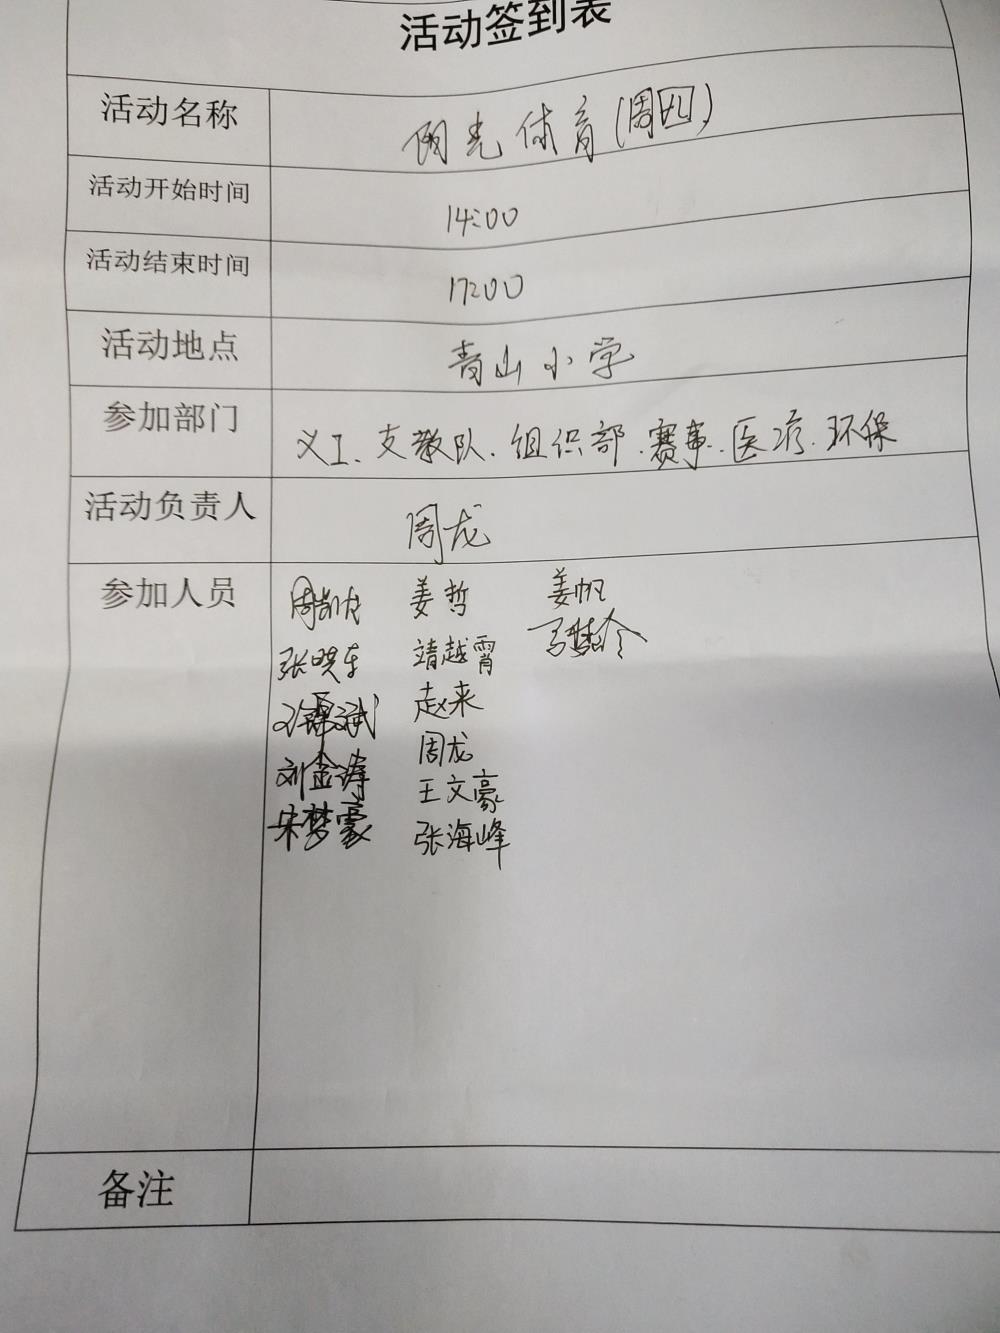 活动签到表
活动名称 阳光体育(周四)
活动开始时间 14:00
活动结束时间 17:00
活动地点 青山小学
参加部门 义工、支教队、组织部、赛事、医疗、环保
活动负责人 周龙
参加人员 周凯 姜哲 姜帆
张晓东 靖越霄 马楚伶
赵来
周龙
刘金涛 王文豪
宋梦豪 张海峰
备注